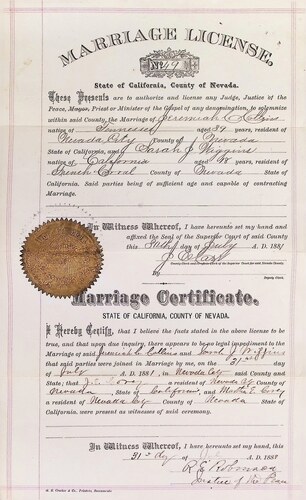 MARRIAGE LICENSE,
No. 49
State of California, County of Nevada.
These Presents are to authorize and license any Judge, Justice of the
Peace, Mayor, Priest or Minister of the Gospel of any denomination, to solemnize
within said County, the Marriage of Jeremiah
native of Tennessee, aged 39 years, resident of
Nevada City County of Nevada
State of California, and Sarah J Wiggins
native of California aged 18 years, resident of
French Corral County of Nevada State of
California. Said parties being of sufficient age and capable of contracting
Marriage.
In Witness Whereof, I have hereunto set my hand and
affixed the Seal of the Superior Court of said County
this day of July A. D. 1881
By
Deputy Clerk.
Marriage Certificate.
STATE OF CALIFORNIA, COUNTY OF NEVADA.
I Hereby Certify, that I believe the facts stated in the above license to be
true, and that upon due inquiry, there appears to be no legal impediment to the
Marriage of said Jeremiah and Sarah J Wiggins
that said parties were joined in Marriage by me, on the 31st day
of July A. D. 1881, in Nevada City said County and
State; that a resident of Nevada City County of
Nevada State of California, and
a resident of Nevada City County of Nevada State of
California, were present as witnesses of said ceremony.
In Witness Whereof, I have hereunto set my hand, this
31st day of July A. D. 1881
Justice of the Peace